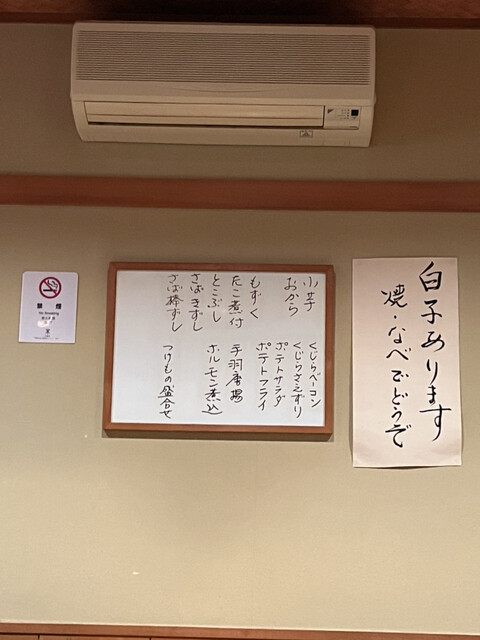 白子あります
焼・なべでどうぞ
小芋
おから
もずく
たこ煮付
とこぶし
さばきずし
さば棒ずし
くじらベーコン
くじらさえずり
ポテトサラダ
ポテトフライ
手羽唐揚
ホルモン煮込
つけもの盛合せ
禁煙
No Smoking